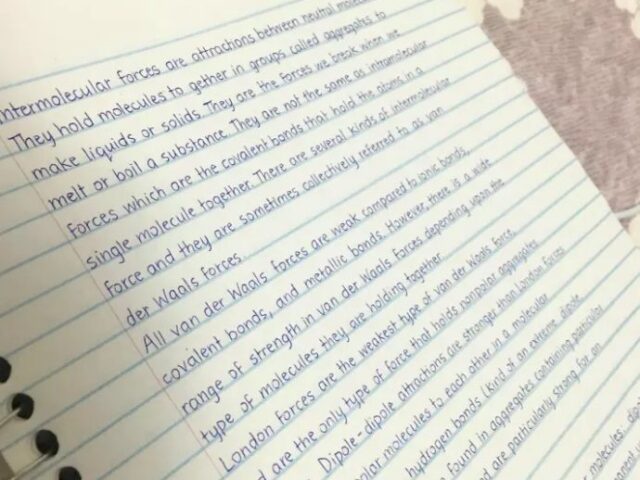 ntermolecular forces are attractions between neutral
They hold molecules to gether in groups called aggregates to
make liquids or solids. They are the forces we break when we
melt or boil a substance. They are not the same as intramolecular
forces which are the covalent bonds that hold the atoms in a
single molecule together. There are several kinds of intermolecular
force and they are sometimes collectively referred to as van
der Waals forces.
All van der Waals forces are weak compared to ionic bonds,
covalent bonds, and metallic bonds. However, there is a wide
range of strength in van der Waals forces depending upon the
type of molecules they are holding together
London forces are the weakest type of van der Waals force
d are the only type of force that holds nonpolar aggregates
Dipole-dipole attractions are stronger than London forces
olar molecules to each other in a molecular
hydrogen bonds (Kind of an extreme dipole
found in aggregates containing particular
nd are particularly strong for an
molecules